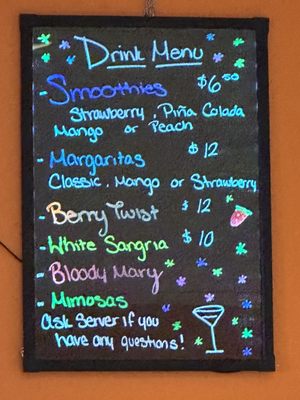 Drink Menu
- Smoothies $6.50
Strawberry, Piña Colada
Mango or Peach
- Margaritas $12
Classic, Mango or Strawberry
- Berry Twist $12
- White Sangria $10
- Bloody Mary
- Mimosas
Ask Server if you
have any questions!